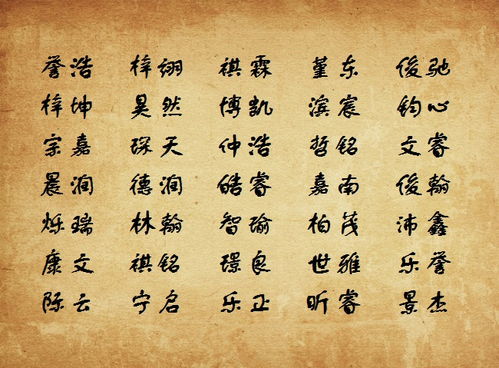 誉浩 梓翊 祺霖 堇东 俊驰
梓坤 昊然 博凯 滨宸 钧心
宗嘉 琛天 仲浩 哲铭 文睿
晨润 德润 皓睿 嘉南 俊翰
烁瑞 林翰 智瑜 柏茂 沛鑫
康文 祺铭 璟良 世雅 乐誉
际云 宁启 乐正 昕睿 景杰